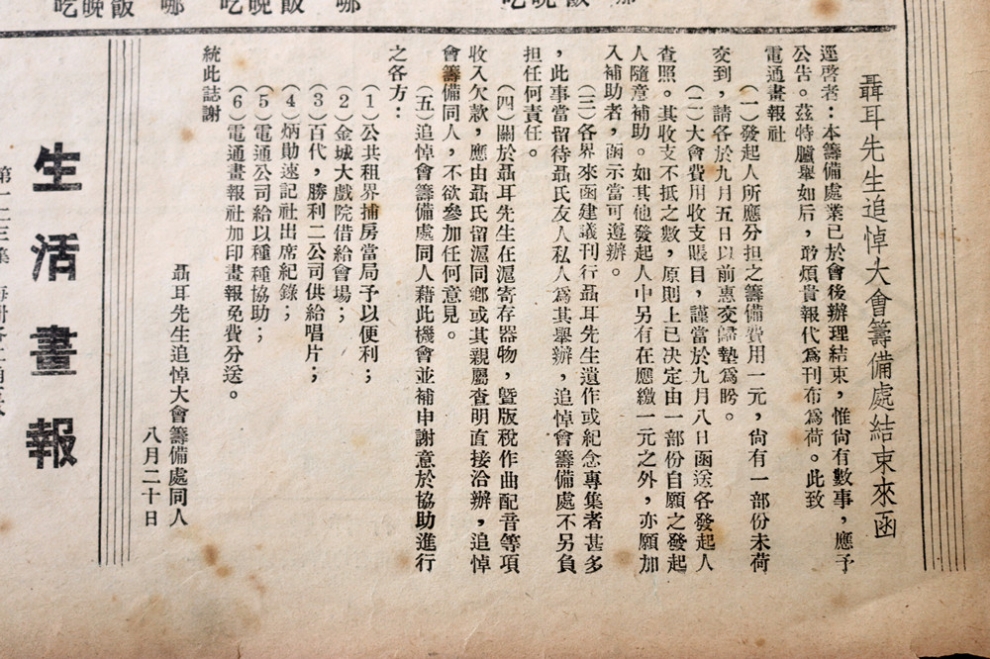 吃晚飯
吃晚飯
聶耳先生追悼大會籌備處結束來函
逕啓者：本籌備處業已於會後辦理結束，惟尙有數事，應予
公告。茲特臚舉如后，敢煩貴報代爲刊布爲荷。此致
電通畫報社
（一）發起人所應分担之籌備費用一元，尙有一部份未荷
交到，請各於九月五日以前惠交歸墊爲盼。
（二）大會費用收支賬目，謹當於九月八日函送各發起人
查照。其收支不抵之數，原則上已决定由一部份自願之發起
人隨意補助。如其他發起人中另有在應繳一元之外，亦願加
入補助者，函示當可遵辦。
（三）各界來函建議刊行聶耳先生遺作或紀念專集者甚多
，此事當留待聶氏友人私人爲其舉辦，追悼會籌備處不另負
担任何責任。
（四）關於聶耳先生在滬寄存器物，曁版稅作曲配音等項
收入欠款，應由聶氏留滬同鄕或其親屬查明直接洽辦，追悼
會籌備同人，不欲參加任何意見。
（五）追悼會籌備處同人藉此機會並補申謝意於協助進行
之各方：
（1）公共租界捕房當局予以便利；
（2）金城大戲院借給會場；
（3）百代，勝利二公司供給唱片；
（4）炳勛速記社出席紀錄；
（5）電通公司給以種種協助；
（6）電通畫報社加印畫報免費分送。
統此誌謝
聶耳先生追悼大會籌備處同人
八月二十日
生活畫報